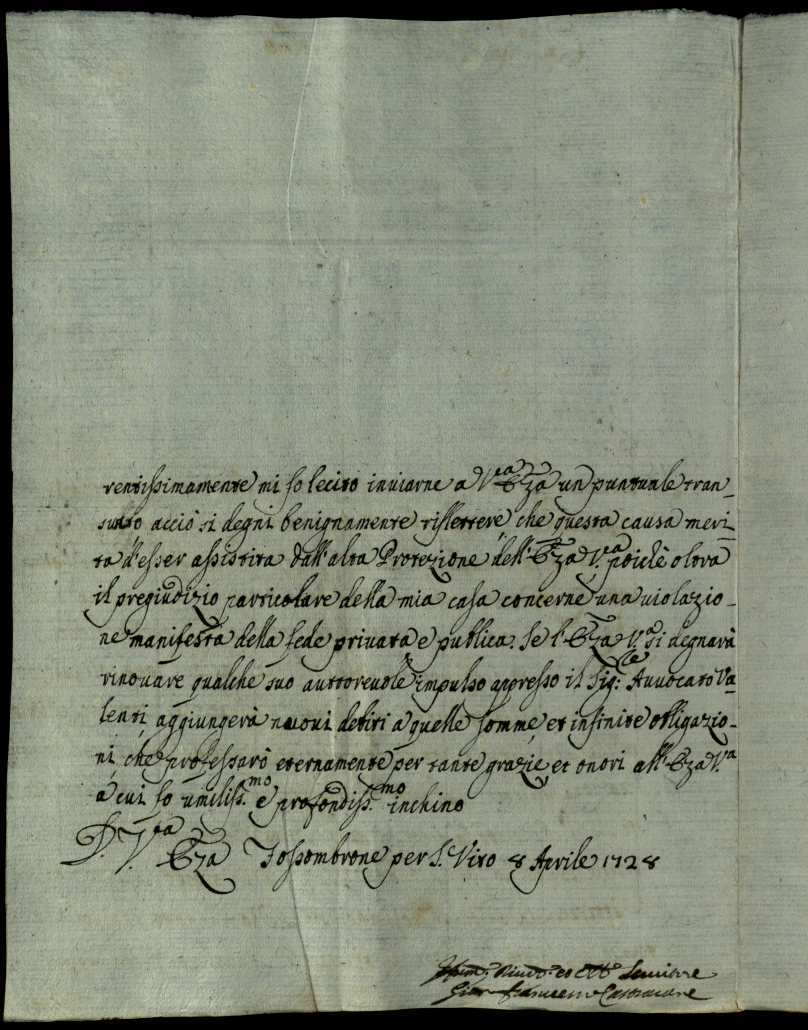 rentissimamente mi fo lecito inviarne a V.ra Ecza un puntuale tran_
sunto acciò si degni benignamente riflettere che questa causa meri_
ta d'esser assistita dall'alta Protezione dell'Ecza V.ra poiche oltra
il pregiudizio particolare della mia casa concerne una violazio_
ne manifesta della fede privata e publica. Se l'Ecza V.ra si degnarà
rinovare qualche suo auttorevole impulso appresso il Sig.re Avvocato Va_
lenti, aggiungerà nuovi debiti a quelle somme, et infinite obligazio_
ni, che professarò eternamente per tante grazie, et onori all'Ecza V.ra
a cui fo umiliss.mo e profondiss.mo inchino
D. V.ra Ecza Fossombrone per S. Vito 8 Aprile 1728
Servitore
Gian Francesco